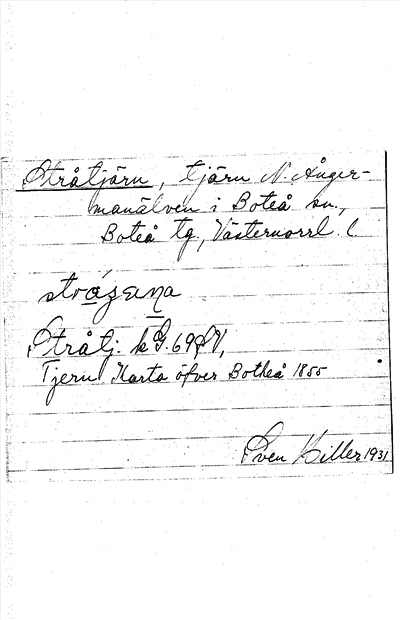 Stråtjärn, tjärn N. Ånger-
manälven i Boteå sn.,
Boteå tg., Västernorrl. l.
Stråtj. k G. 69
Tjern Karta öfver Botheå 1855
Sven Killer 1931